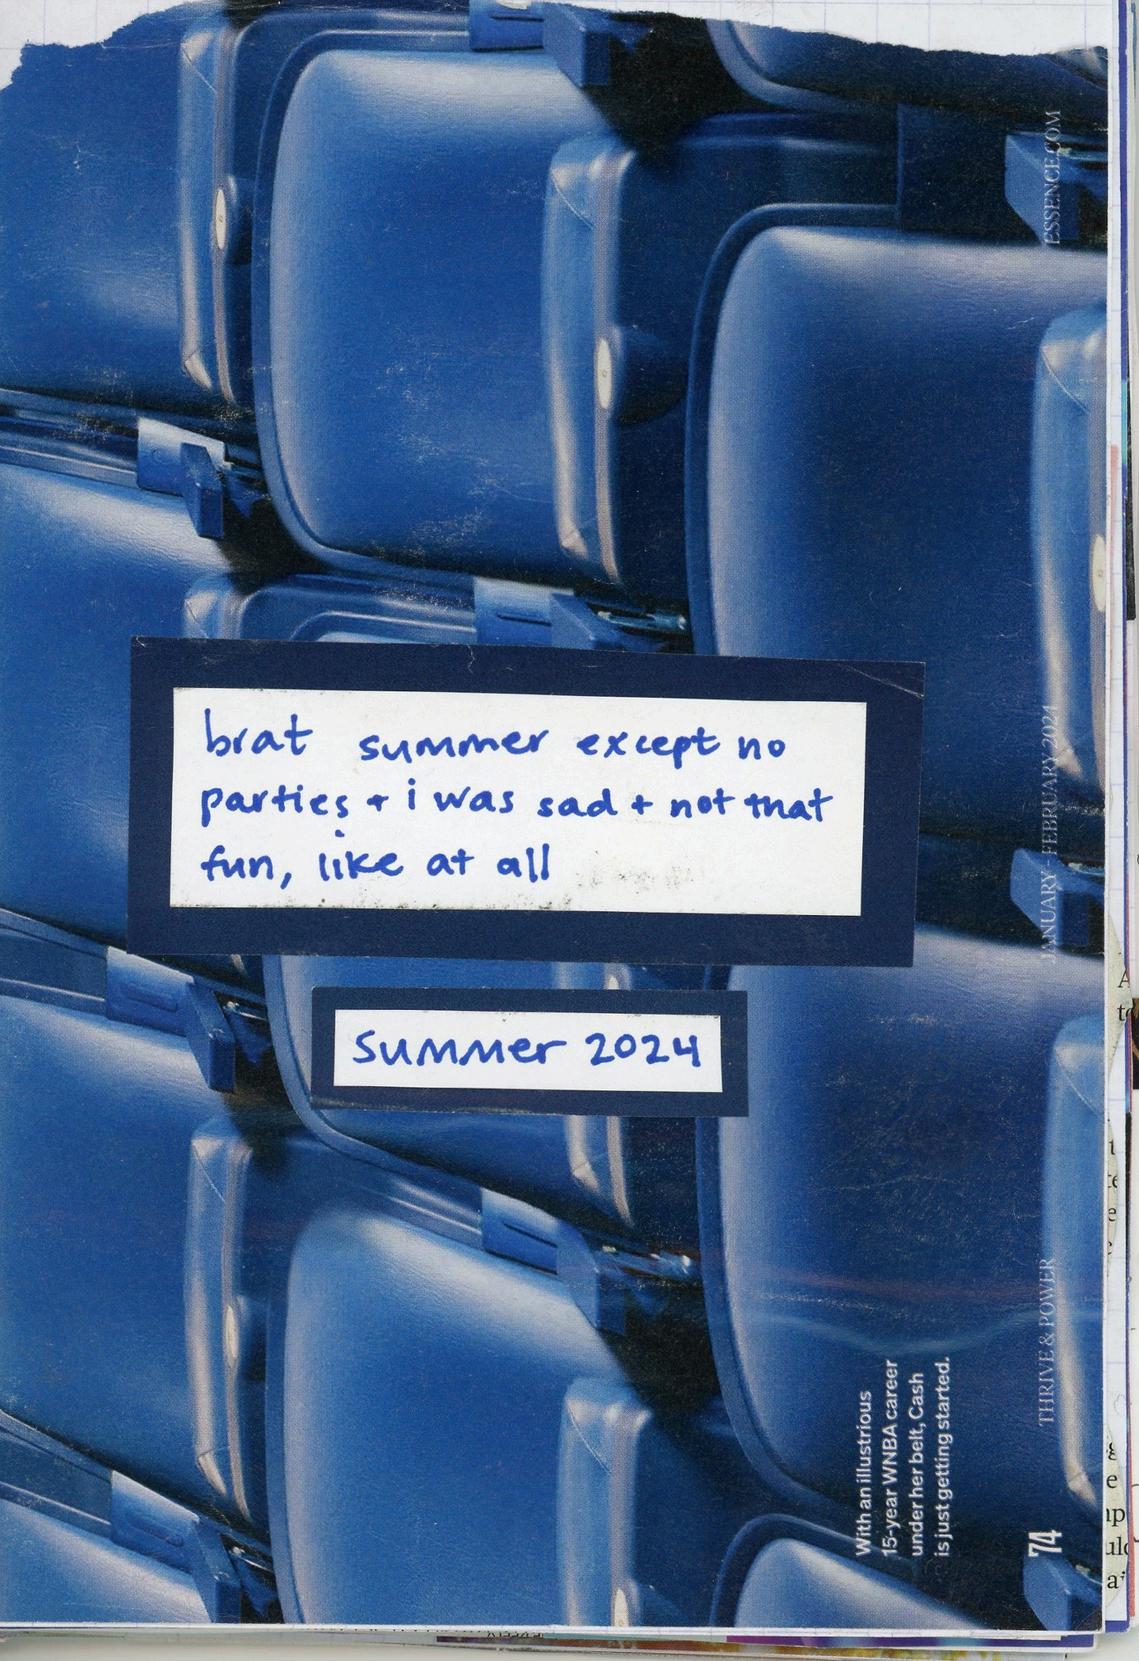 brat summer except no
parties + i was sad + not that
fun, like at all
Summer 2024
With an illustrious
15-year WNBA career
under her belt, Cash
is just getting started.
74
THRIVE & POWER
JANUARY–FEBRUARY 2024
ESSENCE.COM